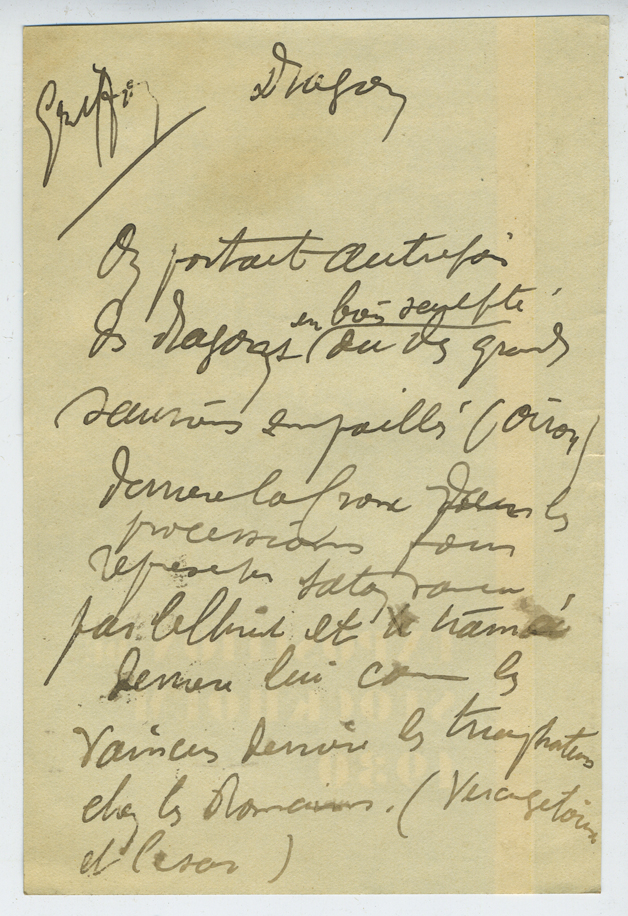 Griffon
Dragon
On portait autrefois
en bois sculpté
des dragons (ou des grands
sauriens empaillés (Oiron)
derriere la Croix dans les
processions pour
représenter Satan vaincu
par le Christ et traîné
derriere lui comme les
vaincus derrière les triomphateurs
chez les Romains. (Vercingetorix
et Cesar)